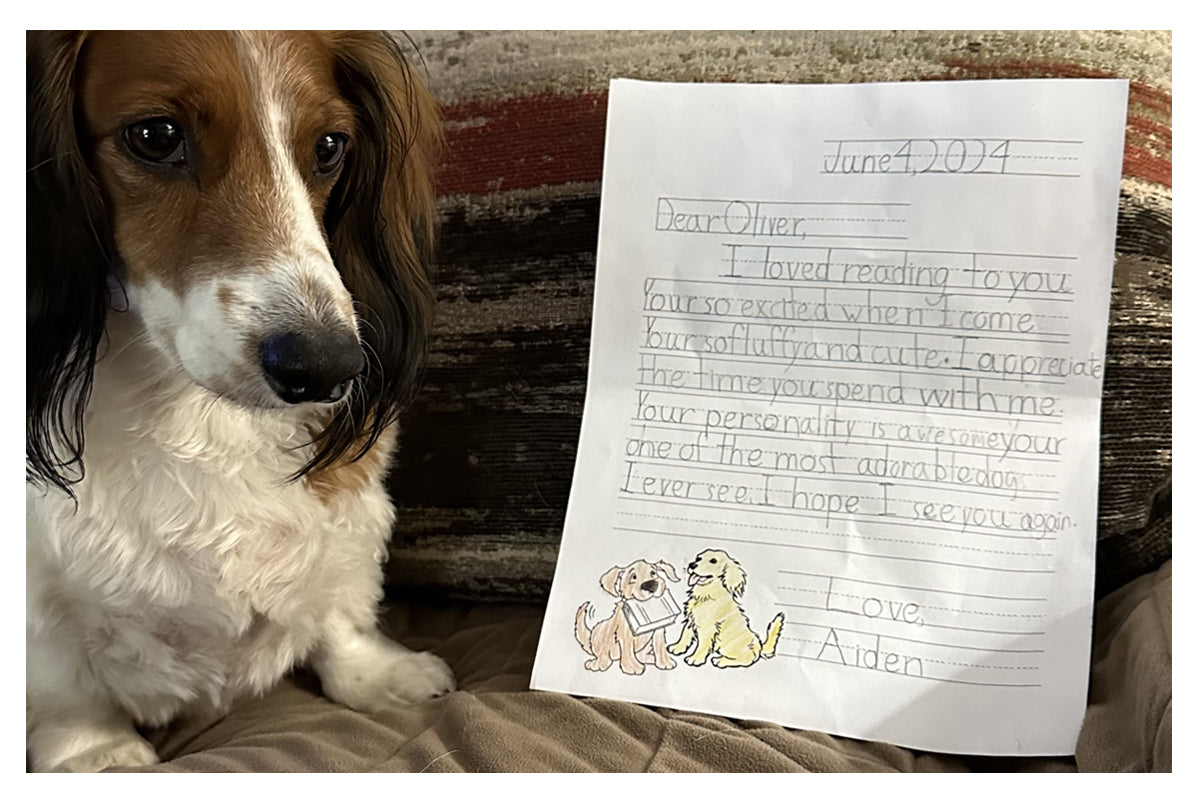 June 4, 2024
Dear Oliver,
I loved reading to you
Your so excited when I come
Your so fluffy and cute. I appreciate
the time you spend with me.
Your personality is awesome your
one of the most adorable dog
I ever see. I hope I see you again.
Love,
Aiden